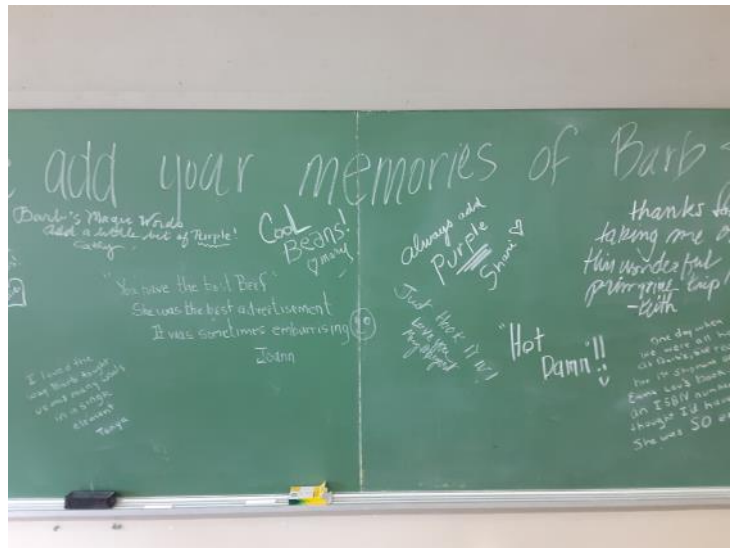 add your memories of Barb
Barb's Magic Words
Add a little bit of Purple!
Cool
Beans!
♡ mary
"You have the best Beef"
She was the best advertisement
It was sometimes embarrising
Joann
I loved the
way Barb taught
us and many
in a single
element
Tanya
always add
Purple
Shari ♡
Just Hook it IN!
Love you
"Hot
Damn"!!
thanks for
taking me
this wonderful
trip!
One day when
we were all
for
Book
an ISBN
thought I'd
She was SO